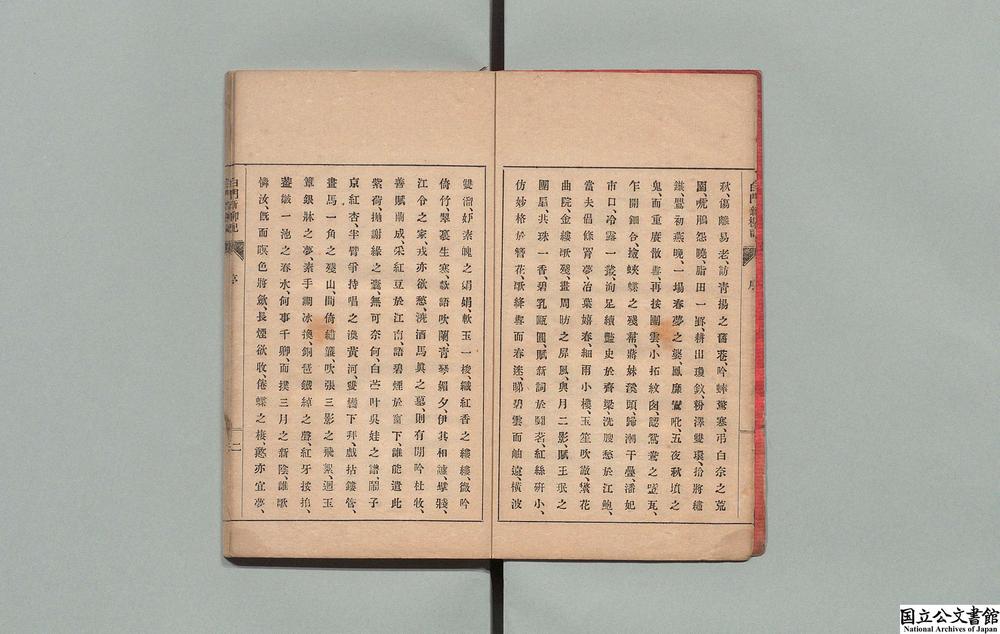 秋、傷離易老、訪青揚之舊巷、吟蛼驚寒、弔白奈之荒
園、唬鵑怨曉、脂田一畝、耕出瓊釵、粉澤雙環、拾將繡
鏃、鶯初燕晚、一場春夢之婆、鳳靡鸞吪、五夜秋墳之
鬼、而重廣散耆、再接團雲、小拓紋囱、認鴛鴦之墮瓦、
乍開鈿合、撿蛺蝶之殘帬、蔣妹溪頭、歸潮干疊、潘妃
市口、冷露一簁、洵足續豔史於齊梁、洗腹愁於江鮑、
當夫倡條宵夢、冶葉嬉春、細雨小樓、玉笙吹澈、裳花
曲院、金縷歌殘、畫周昉之屏風、與月二影、賦王珉之
團扇、共珠一香、碧乳甌圓、賦新詞於鬪茗、紅絲硏小、
仿妙格於簪花、歌絳脣而春迷、睇碧雲而岫遠、橫波
白門新柳記
序
雙溜、妒素魄之娟娟、軟玉一梭、織紅香之縷縷、微吟
倚竹、翠裏生寒、款語吹蘭、靑琴媚夕、伊其相謔、擘牋
江令之家、戎亦欲愁、洗酒馬眞之墓、則有閒吟杜牧、
善賦蘭成、采紅豆於江南、語碧煙於窗下、誰能遣此
紫荷、拋謝緣之囊、無可奈何、白苎叶吳娃之譜、鬧子
京紅杏、半臂爭持、唱之渙黃河、雙鬟下拜、戲拈鏤管、
畫馬一角之殘山、閒倚繡簾、吹張三影之飛絮、迴玉
簟銀牀之夢、素手調冰、換銅琶鐵綽之聲、紅牙按拍、
蹙皺一池之春水、何事千卿、而撲三月之新陰、誰歌
憐汝、旣而暝色將斂、長煙欲收、倦蝶之棲、憨亦宜夢、
白門新柳記
序
二
国立公文書館
National Archives of Japan